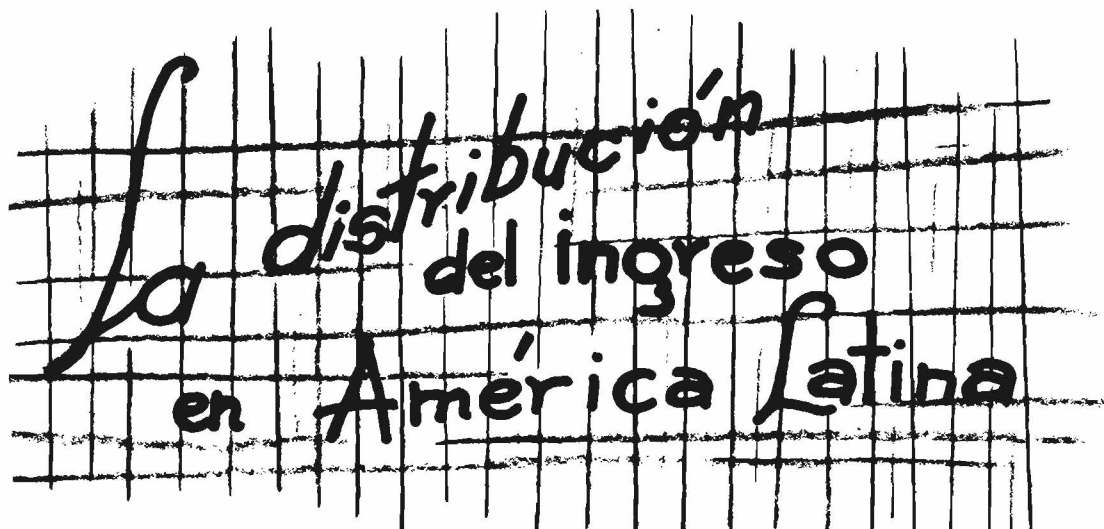 La distribución
del ingreso
en América Latina